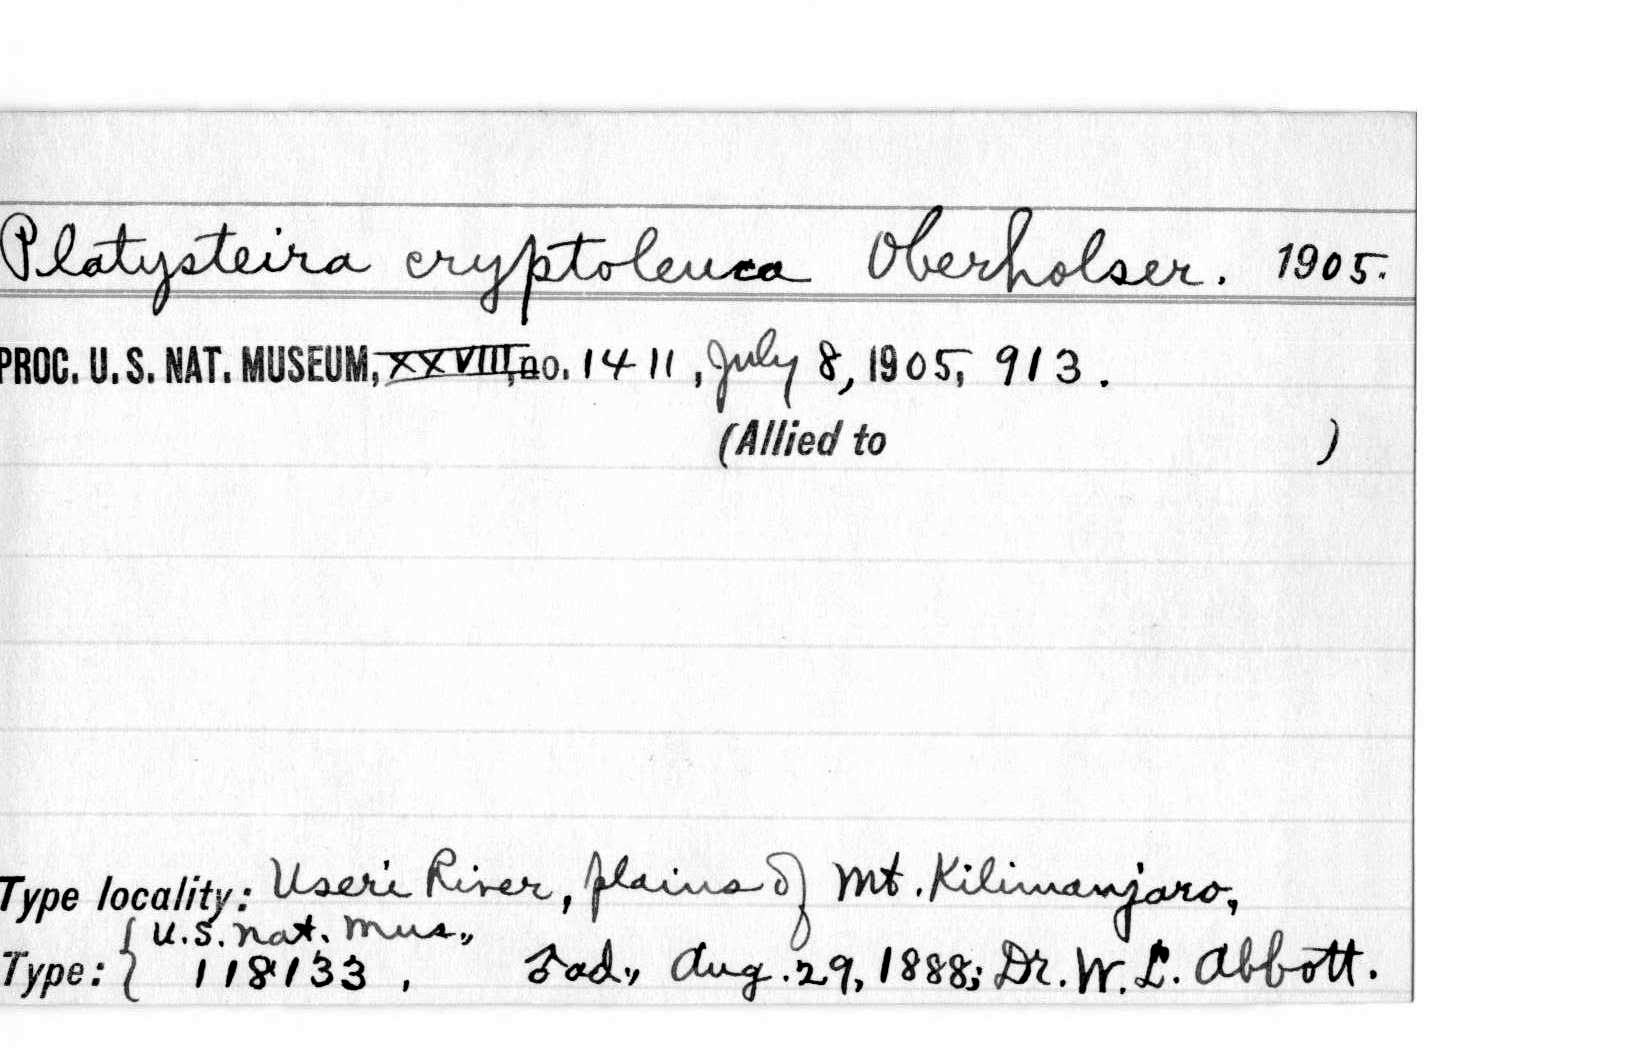 Platysteira cryptoleuca Oberholser. 1905.
PROC. U. S. NAT. MUSEUM, XXVIII, no. 1411, July 8, 1905, 913.
(Allied to )
Type locality: Useri River, plains of Mt. Kilimanjaro,
U.S. Nat. Mus.,
Type: 118133, ad., Aug. 29, 1888; Dr. W. L. Abbott.